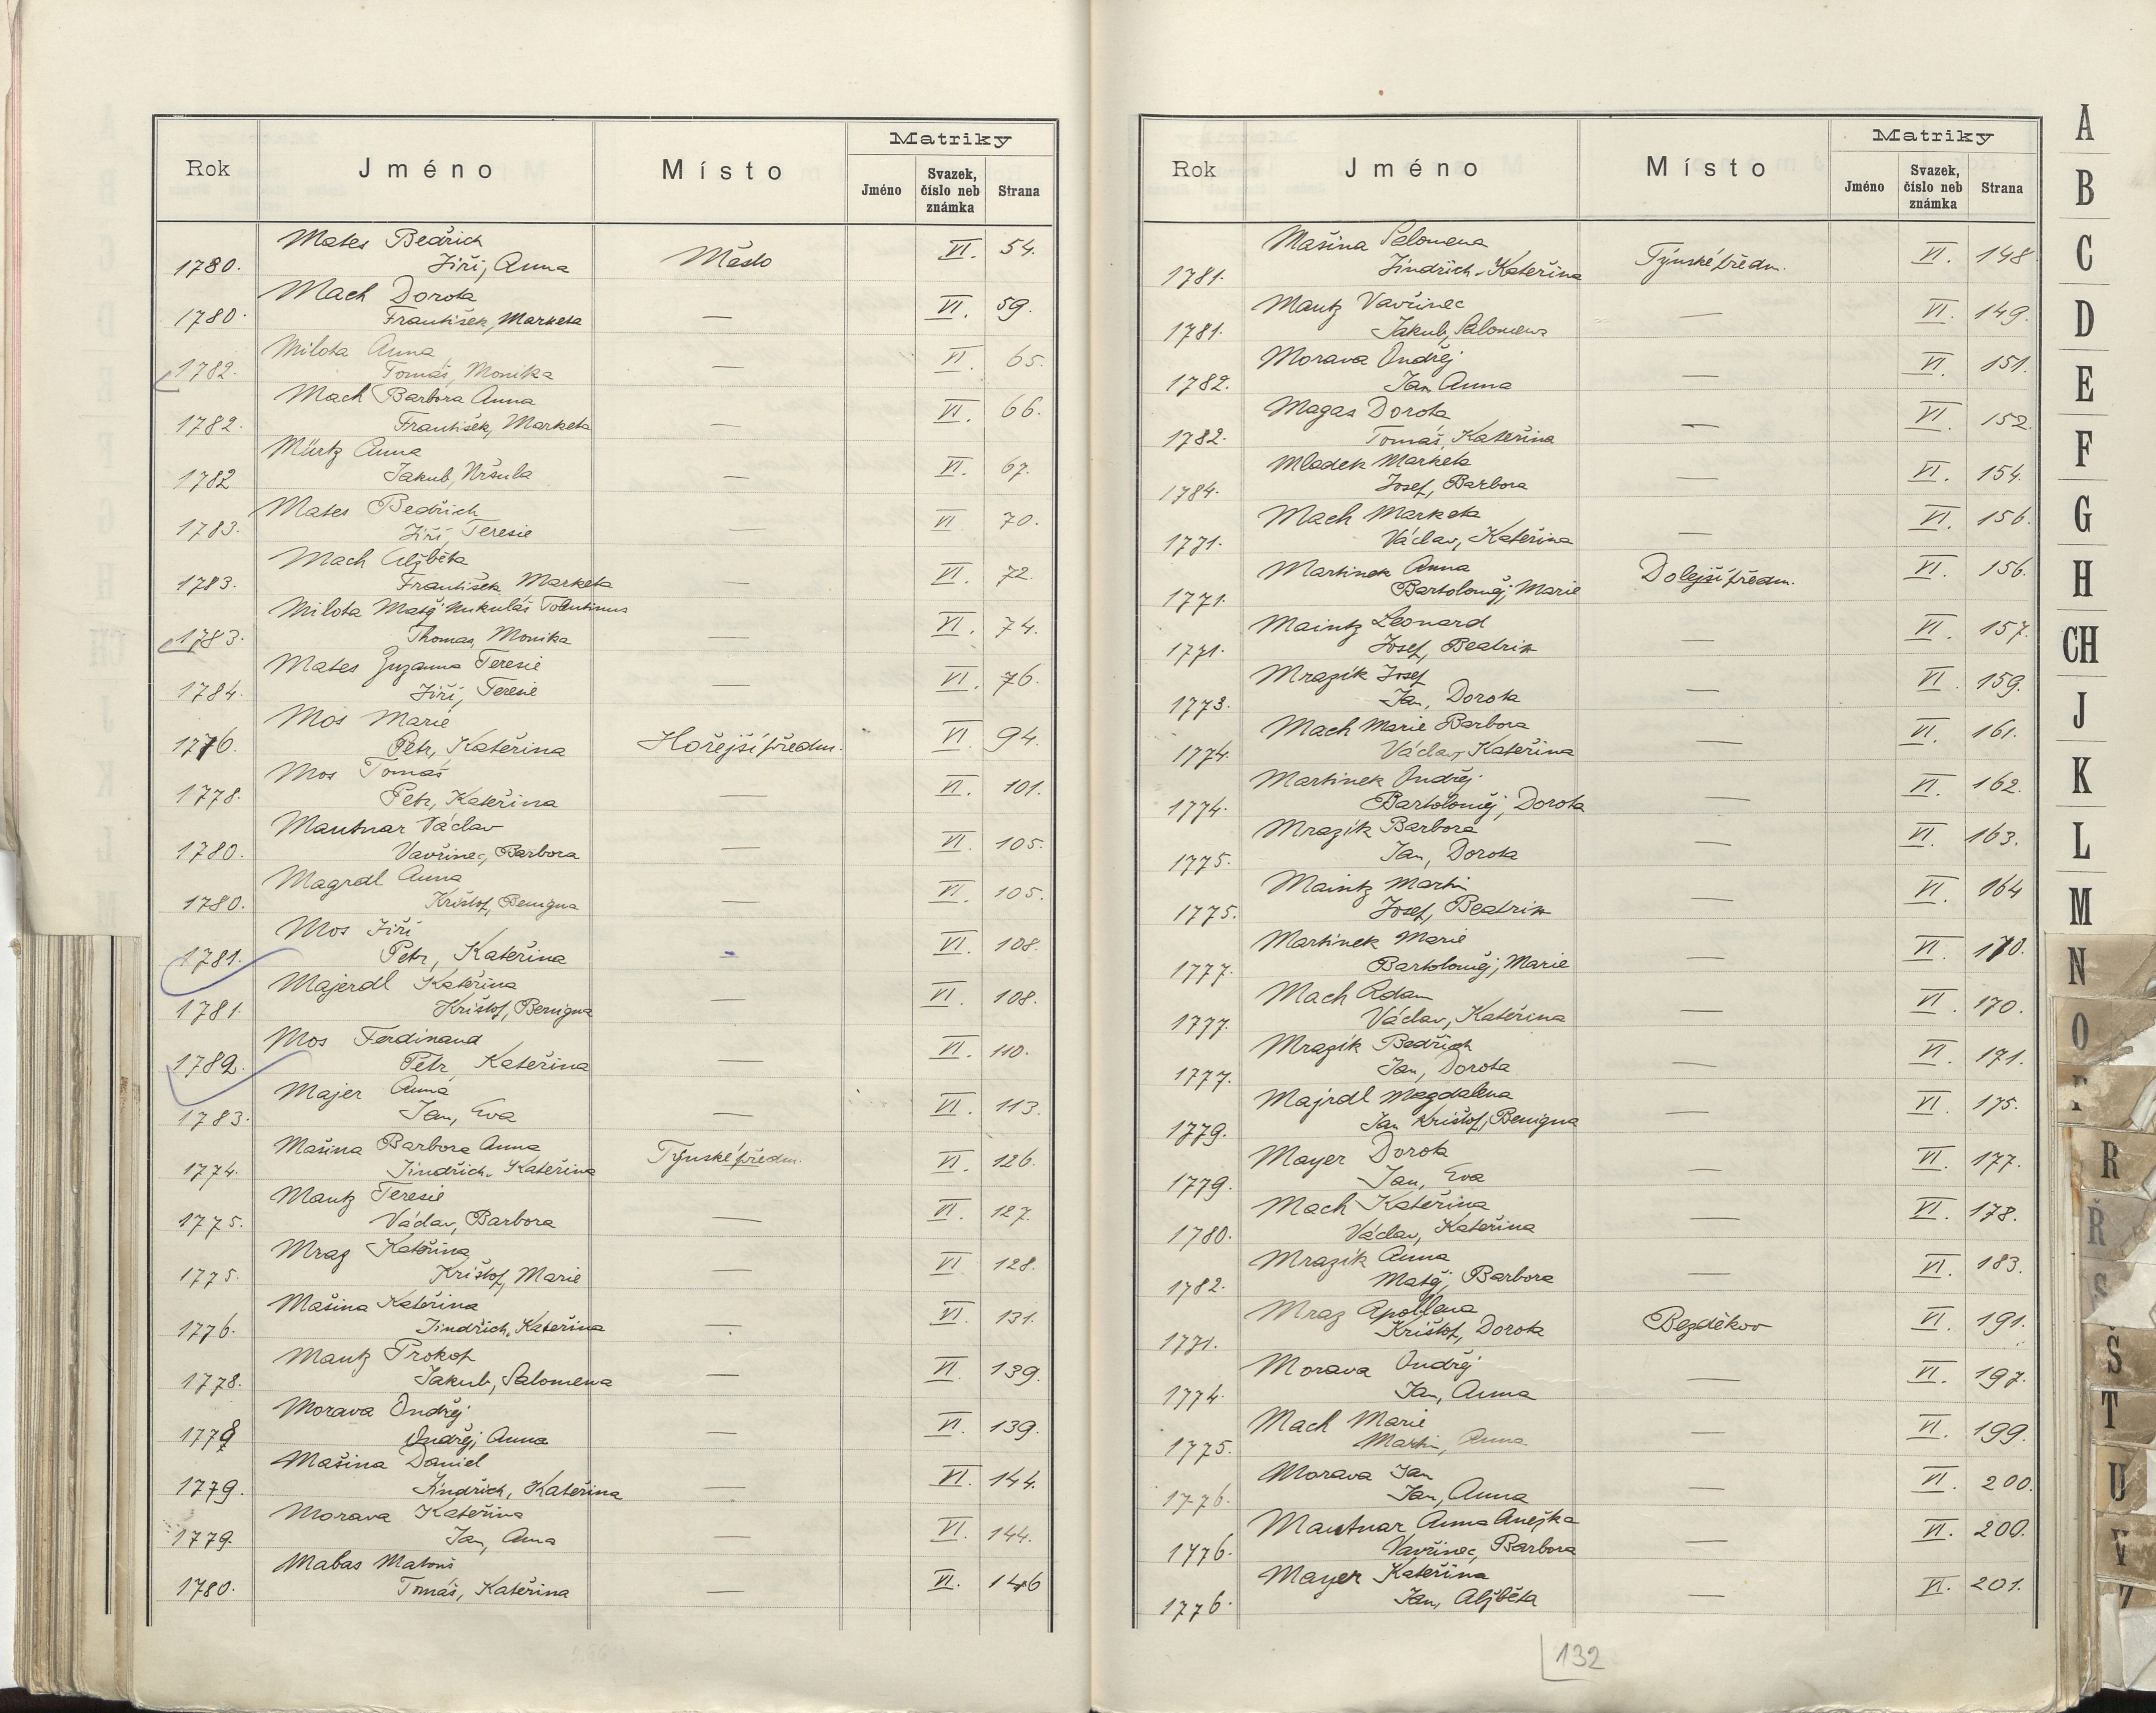 Rok Jméno Místo Matriky
Jméno Svazek, číslo neb známka Strana
Mates Bedřich
1780. Jiří, Anna Město VI. 54.
Mach Dorota
1780. František, Marketa — VI. 59.
Milota Anna
1782. Tomáš, Monika — VI. 65.
Mach Barbora Anna
1782. František, Marketa — VI. 66.
Mürtz Anna
1782 Jakub, Uršula — VI. 67.
Mates Bedřich
1783. Jiří, Teresie — VI 70.
Mach Alžběta
1783. František, Marketa — VI. 72.
Milota Matěj Mukuláš Tolentinus
1783. Thomas, Monika — VI. 74.
Mates Zuzanna Teresie
1784. Jiří, Teresie — VI. 76.
Mos Marie
1776. Petr, Kateřina Hořejší předm. VI. 94.
Mos Tomáš
1778. Petr, Kateřina — VI. 101.
Mautnar Václav
1780. Vavřinec, Barbora — VI. 105.
Magrdl Anna
1780. Krištof, Benigna — VI. 105.
Mos Jiří
1781. Petr, Kateřina - VI. 108.
Majerdl Kateřina
1781. Krištof, Benigna — VI. 108.
Mos Ferdinand
1782. Petr, Kateřina — VI. 110.
Majer Anna
1783. Jan, Eva — VI. 113.
Mašina Barbora Anna
1774. Jindřich, Kateřina Týnské předm. VI. 126.
Mautz Teresie
1775. Václav, Barbora — VI. 127.
Mraz Kateřina
1775. Krištof, Marie — VI 128.
Mašina Kateřina
1776. Jindřich, Kateřina — VI. 131.
Mautz Prokop
1778. Jakub, Salomena — VI. 139.
Morava Ondřej
1778 Ondřej, Anna — VI. 139.
Mašina Daniel
1779. Jindřich, Kateřina — VI. 144.
Morava Kateřina
1779. Jan, Ana — VI. 144.
Mabas Matouš
1780. Tomáš, Kateřina — VI. 146
Rok Jméno Místo Matriky
Jméno Svazek, číslo neb známka Strana
Mašina Salomena
1781. Jindřich, Kateřina Týnské předm. VI. 148
Mautz Vavřinec
1781. Jakub, Salomena — VI. 149.
Morava Ondřej
1782. Jan Anna — VI. 151.
Magas Dorota
1782. Tomáš, Kateřina — VI. 152.
Mladek Marketa
1784. Josef, Barbora — VI. 154.
Mach Marketa
1771. Václav, Kateřina — VI. 156.
Martinek Anna
1771. Bartoloměj, Marie Dolejší předm. VI. 156.
Maintz Leonard
1771. Josef, Beatrix — VI. 157.
Mrazík Josef
1773. Jan, Dorota — VI. 159.
Mach Marie Barbora
1774. Václav, Kateřina — VI. 161.
Martinek Ondřej
1774. Bartoloměj, Dorota — VI. 162.
Mrazík Barbora
1775. Jan, Dorota — VI. 163.
Maintz Martin
1775. Josef, Beatrix — VI. 164
Martinek Marie
1777. Bartoloměj, Marie — VI. 170.
Mach Adam
1777. Václav, Kateřina — VI. 170.
Mrazík Bedřich
1777. Jan, Dorota — VI. 171.
Majrdl Magdalena
1779. Jan Krištof, Benigna — VI. 175.
Mayer Dorota
1779. Jan, Eva — VI. 177.
Mach Kateřina
1780. Václav, Kateřina — VI. 178.
Mrazík Anna
1782. Matěj, Barbora — VI. 183.
Mraz Apollena
1771. Krištof, Dorota Bezděkov VI. 191.
Morava Ondřej
1774. Jan, Anna — VI. 197.
Mach Marie
1775. Martin, Anna — VI. 199.
Morava Jan
1776. Jan, Anna — VI. 200.
Mautnar Anna Anežka
1776. Vavřinec, Barbora — VI. 200.
Mayer Kateřina
1776. Jan, Alžběta — VI. 201.
132
A
B
C
D
E
F
G
H
CH
J
K
L
M
N
O
R
Ř
S
Š
T
U
V